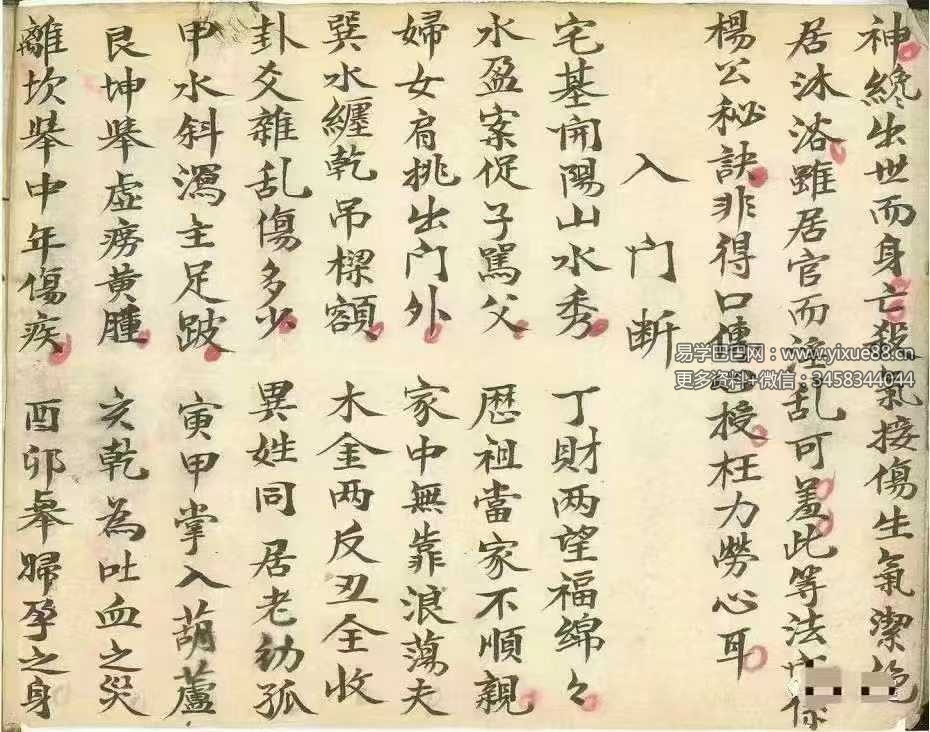 神纔出世而身亡殺氣接傷生氣潔絶
居沐浴雖居官而淫乱可羞此等法
楊公秘訣非得口傳授枉力勞心耳
入門断
宅基開陽山水秀 丁財两望福綿々
水盈案促子罵父 歴祖當家不順親
婦女肩挑出门外 家中無靠浪蕩夫
巽水纏乾吊樑額 木金两反丑全收
卦爻雜乱傷多少 異姓同居老幼孤
甲水斜瀉主足跛 寅甲掌入葫蘆
艮坤举虚癆黄腫 亥乾為吐血之災
離坎举中年傷疾 酉卯举婦孕之身
易学巴巴网：www.yixue88.cn
更多资料+微信：3458344044